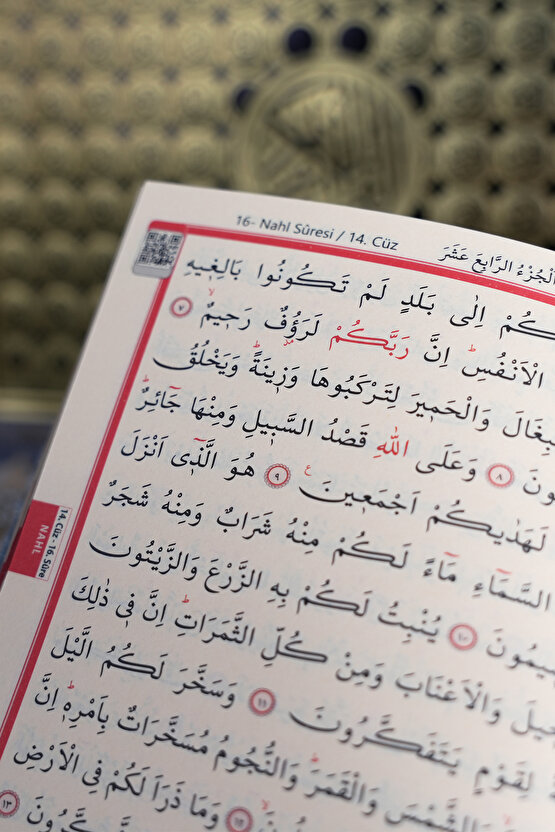 اَلْجُزْءُ الرَّابِعَ عَشَرَ
16- Nahl Sûresi / 14. Cüz
اِلٰى بَلَدٍ لَمْ تَكُونُوا بَالِغِيهِ
الْاَنْفُسِۜ اِنَّ رَبَّكُمْ لَرَؤُ۫فٌ رَح۪يمٌۙ ٧
وَالْحَم۪يرَ لِتَرْكَبُوهَا وَز۪ينَةًۜ وَيَخْلُقُ
٨ وَعَلَى اللّٰهِ قَصْدُ السَّب۪يلِ وَمِنْهَا جَٓائِرٌۜ
لَهَدٰيكُمْ اَجْمَع۪ينَ۟ ٩ هُوَ الَّذ۪ٓي اَنْزَلَ
السَّمَٓاءِ مَٓاءً لَكُمْ مِنْهُ شَرَابٌ وَمِنْهُ شَجَرٌ
١٠ يُنْبِتُ لَكُمْ بِهِ الزَّرْعَ وَالزَّيْتُونَ
وَالْاَعْنَابَ وَمِنْ كُلِّ الثَّمَرَاتِۜ اِنَّ ف۪ي ذٰلِكَ
لِقَوْمٍ يَتَفَكَّرُونَ ١١ وَسَخَّرَ لَكُمُ الَّيْلَ
وَالشَّمْسَ وَالْقَمَرَۜ وَالنُّجُومُ مُسَخَّرَاتٌ بِاَمْرِه۪ۜ اِنَّ
١٢ وَمَا ذَرَاَ لَكُمْ فِي الْاَرْضِ
١٣
14. Cüz - 16. Sûre
NAHL